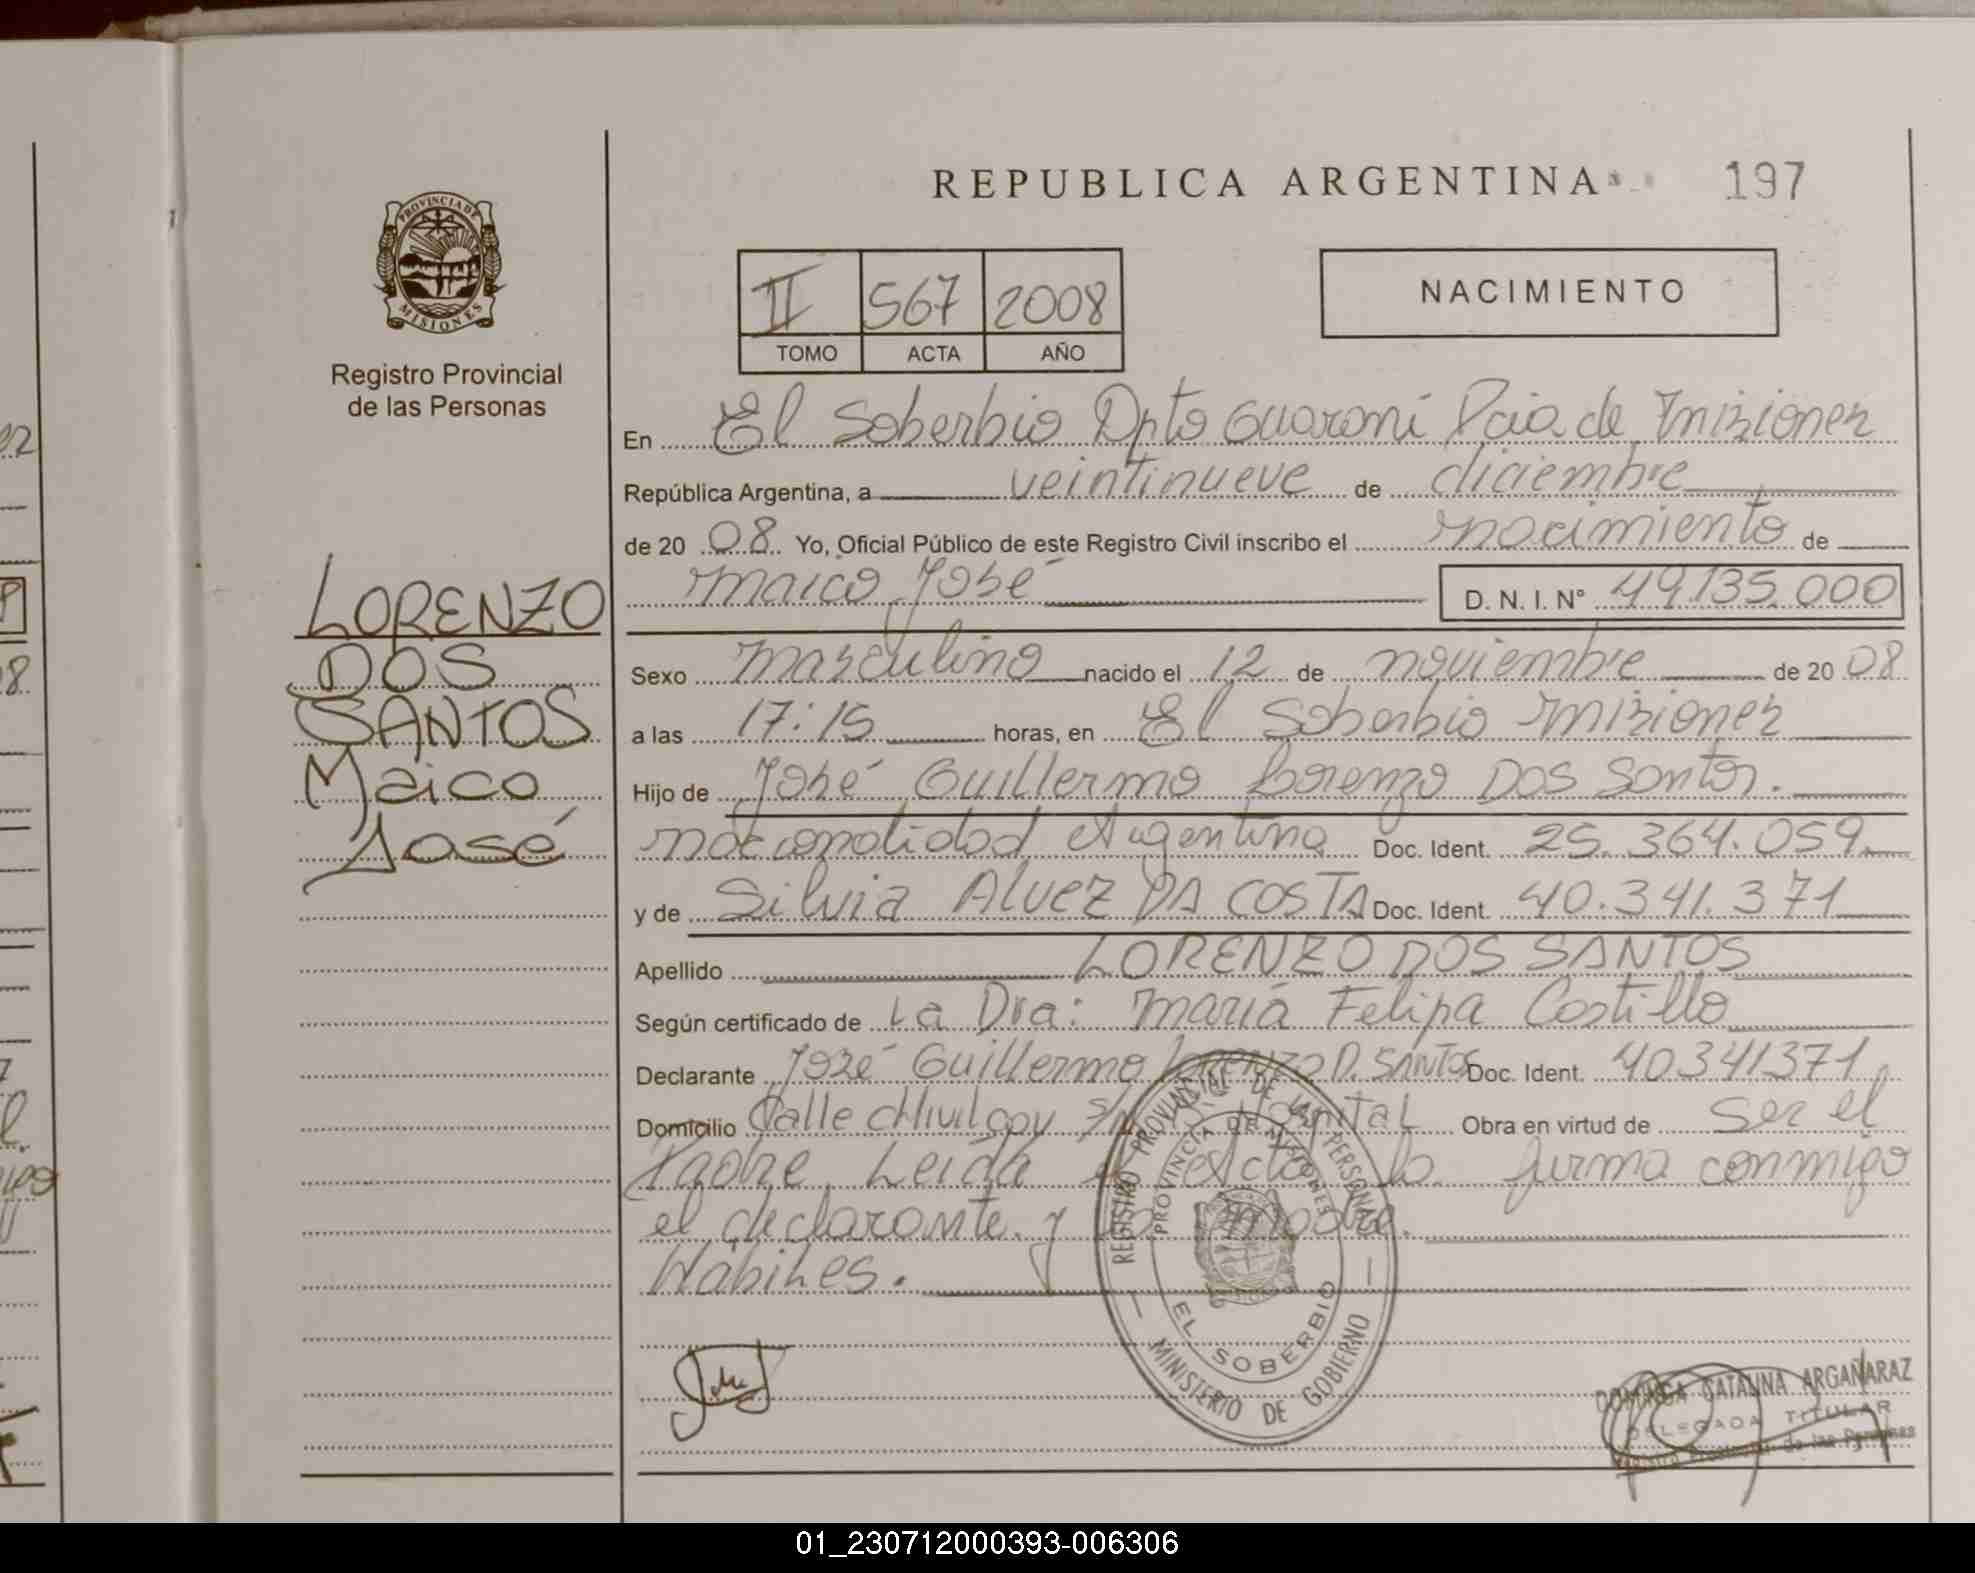 REPUBLICA ARGENTINA 197
PROVINCIA DE
MISIONES
Registro Provincial
de las Personas
II 567 2008
TOMO ACTA AÑO
NACIMIENTO
LORENZO
DOS
SANTOS
Maico
José
En El Soberbio Dpto Guaraní Pcia de Misiones
República Argentina, a veintinueve de diciembre
de 20 08 Yo, Oficial Público de este Registro Civil inscribo el nacimiento de
Maico José D. N. I. N° 49.135.000
Sexo Masculino nacido el 12 de noviembre de 20 08
a las 17:15 horas, en El Soberbio Misiones
Hijo de José Guillermo Lorenzo Dos Santos.
nacionalidad Argentina Doc. Ident. 25.364.059
y de Silvia Alvez DA COSTA Doc. Ident. 40.341.371
Apellido LORENZO DOS SANTOS
Según certificado de La Dra: María Felipa Costillo
Declarante José Guillermo Lorenzo D. SANTOS Doc. Ident. 40341371
Domicilio Calle Chivilcoy S/N Hospital Obra en virtud de Ser el
Padre Leída el acta la firma conmigo
el declarante y la Madre.
Hábiles.
REGISTRO PROVINCIAL DE LAS PERSONAS
PROVINCIA DE MISIONES
EL SOBERBIO
MINISTERIO DE GOBIERNO
DOMINGA CATALINA ARGAÑARAZ
DELEGADA TITULAR
Registro Provincial de las Personas
01_230712000393-006306